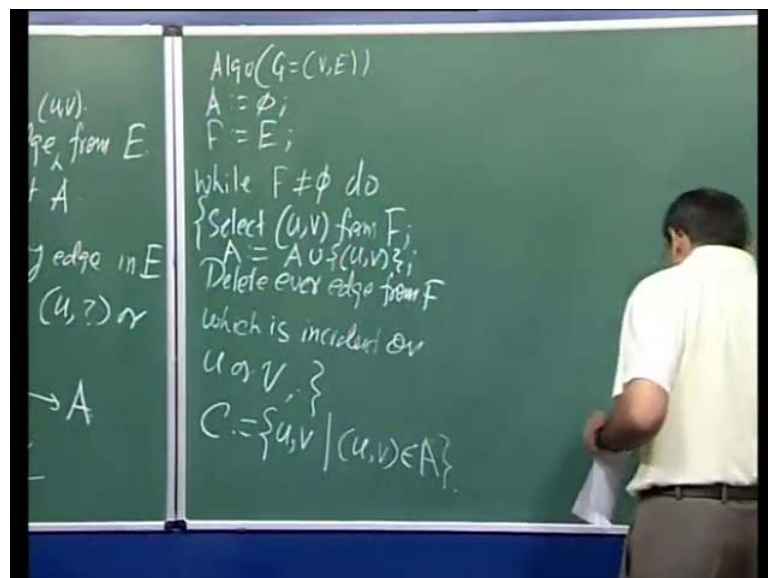 (u,v).
from E
A
edge in E
(u,?) or
→ A
Algo(G=(V,E))
A := φ;
F = E;
while F ≠ φ do
{Select (u,v) from F;
A := A ∪ {(u,v)};
Delete ever edge from F
which is incident on
u or v; }
C := {u,v | (u,v) ∈ A}.